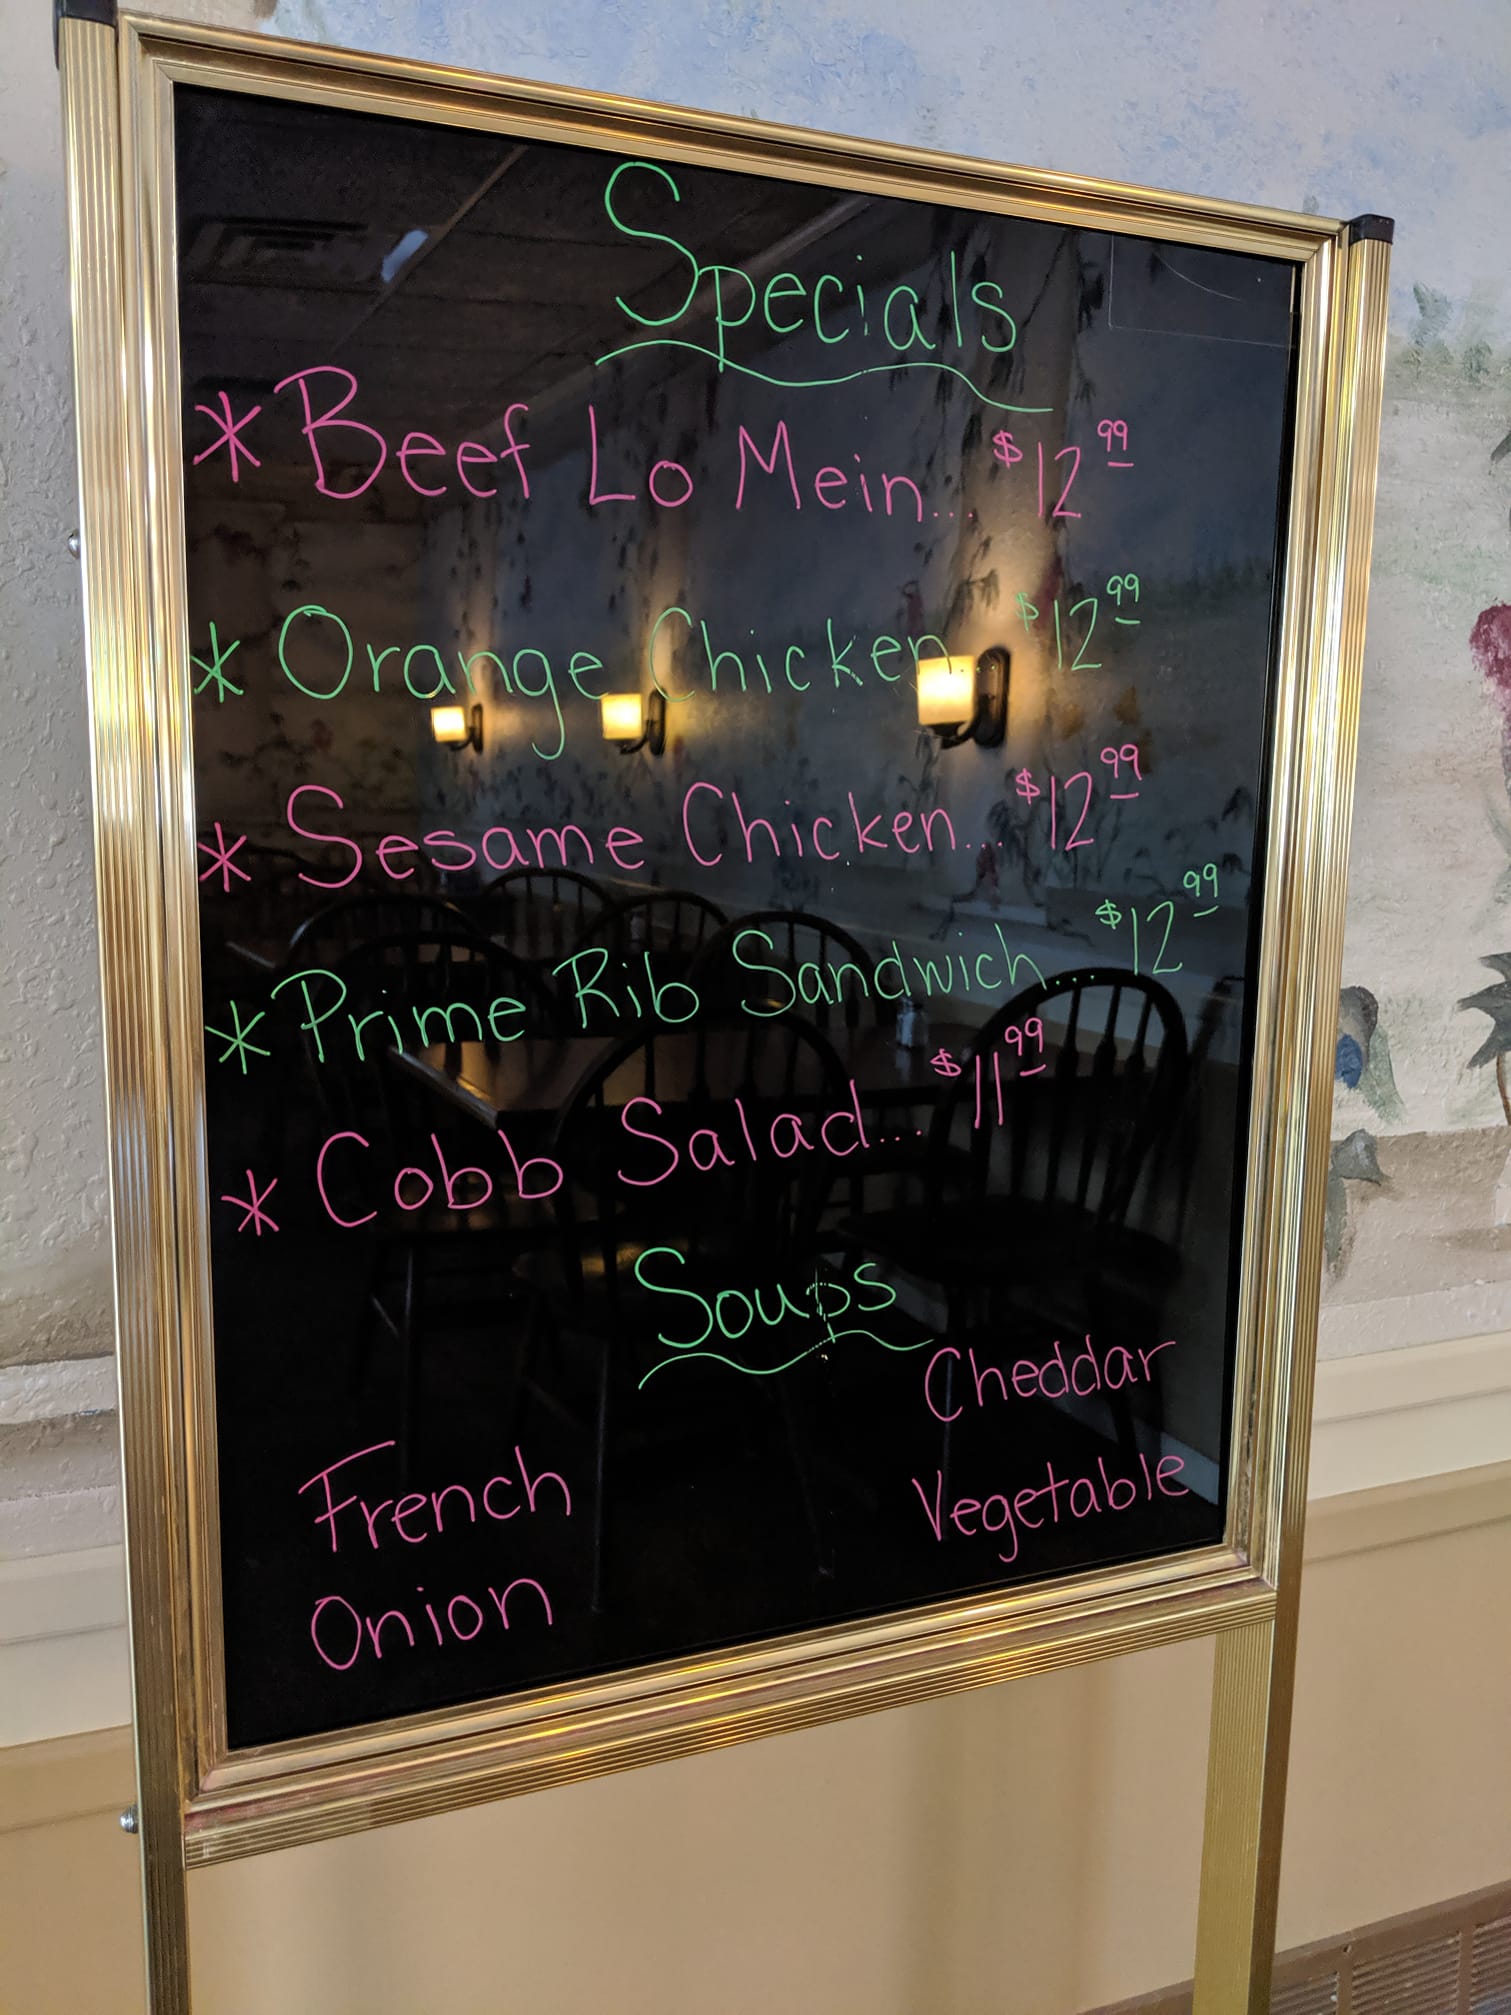 Specials
* Beef Lo Mein... $12.99
* Orange Chicken... $12.99
* Sesame Chicken... $12.99
* Prime Rib Sandwich... $12.99
* Cobb Salad... $11.99
Soups
French
Onion
Cheddar
Vegetable